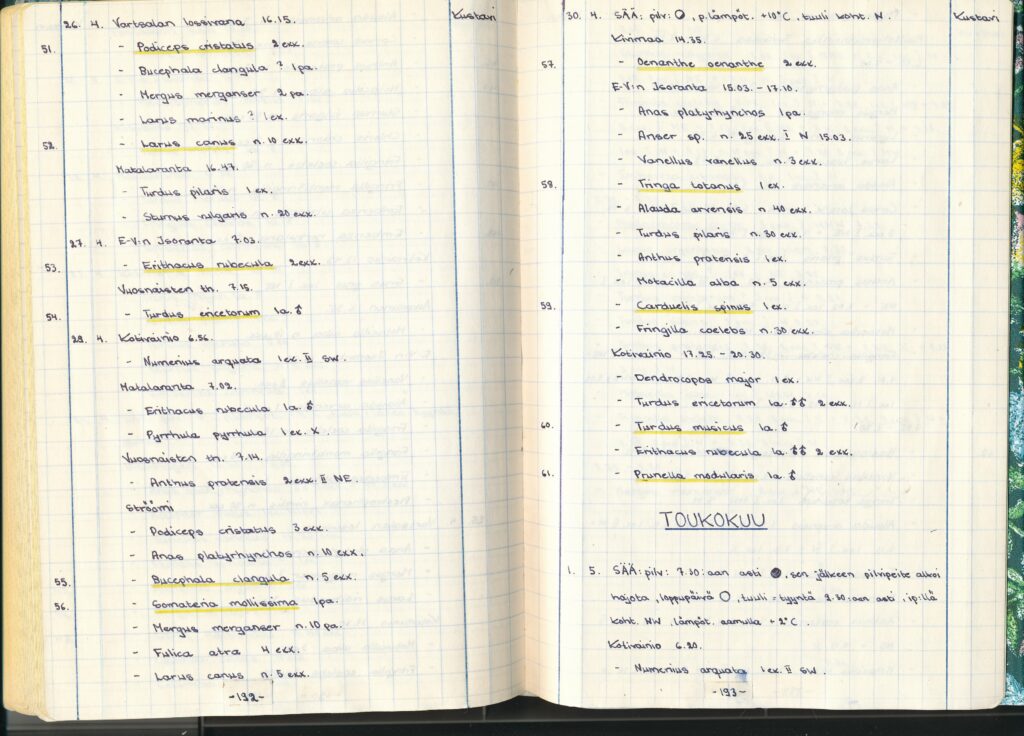 26. 4. Vartsalan lossiranta 16.15. Kustavi
51. - Podiceps cristatus 2 exx.
- Bucephala clangula ? 1 pa.
- Mergus merganser 2 pa.
- Larus marinus ? 1 ex.
52. - Larus canus n. 10 exx.
Matalaranta 16.47.
- Turdus pilaris 1 ex.
- Sturnus vulgaris n. 20 exx.
27. 4. E-V:n Isoranta 7.03.
53. - Erithacus rubecula 2 exx.
Vuosnaisten th. 7.15.
54. - Turdus ericetorum 1 ä. ♂
29. 4. Kotirainio 6.56.
- Numenius arquata 1 ex. II SW.
Matalaranta 7.02.
- Erithacus rubecula 1 ä. ♂
- Pyrrhula pyrrhula 1 ex. x.
Vuosnaisten th. 7.14.
- Anthus pratensis 2 exx. II NE.
Ströömi
- Podiceps cristatus 3 exx.
- Anas platyrhynchos n. 10 exx.
55. - Bucephala clangula n. 5 exx.
56. - Somateria mollissima 1 pa.
- Mergus merganser n. 10 pa.
- Fulica atra 4 exx.
- Larus canus n. 5 exx.
-192-
30. 4. SÄÄ: pilv: O, p. lämpöt. +10°C, tuuli koht. N. Kustavi
Kivimaa 14.35.
57. - Oenanthe oenanthe 2 exx.
E-V:n Isoranta 15.03. - 17.10.
- Anas platyrhynchos 1 pa.
- Anser sp. n. 25 exx. I N 15.03.
- Vanellus vanellus n. 3 exx.
58. - Tringa totanus 1 ex.
- Alauda arvensis n 40 exx.
- Turdus pilaris n. 30 exx.
- Anthus pratensis 1 ex.
- Motacilla alba n. 5 exx.
59. - Carduelis spinus 1 ex.
- Fringilla coelebs n. 30 exx.
Kotirainio 17.25. - 20.30.
- Dendrocopos major 1 ex.
- Turdus ericetorum 1 ä. ♂♂ 2 exx.
60. - Turdus musicus 1 ä. ♂
- Erithacus rubecula 1 ä. ♂♂ 2 exx.
61. - Prunella modularis 1 ä. ♂
TOUKOKUU
1. 5. SÄÄ: pilv: 7.30:aan asti ●, sen jälkeen pilvipeite alkoi
hajota, loppupäivä O, tuuli = tyyntä 8.30:aan asti, ip:llä
koht. NW, lämpöt. aamulla +2°C.
Kotirainio 6.20.
- Numenius arquata 1 ex. II SW.
-193-